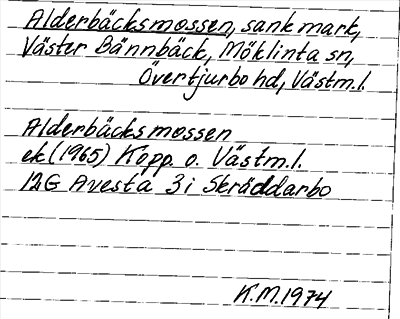 Alderbäcksmossen, sank mark,
Väster Bännbäck, Möklinta sn,
Övertjurbo hd, Västm.l.
Alderbäcksmossen
ek (1965) Kopp. o. Västm.l.
12G Avesta 3i Skräddarbo
K.M.1974